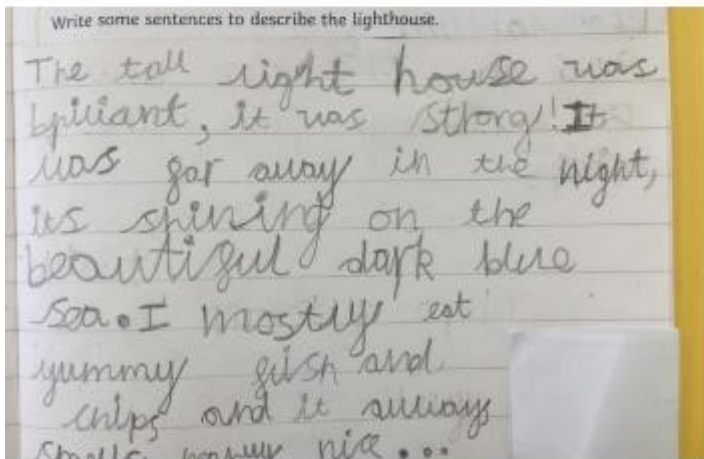 Write some sentences to describe the lighthouse.
The tall light house was
brilliant, it was strong! It
was far away in the night,
its shining on the
beautiful dark blue
sea. I mostly eat
yummy fish and
chips and it always
smells nice...